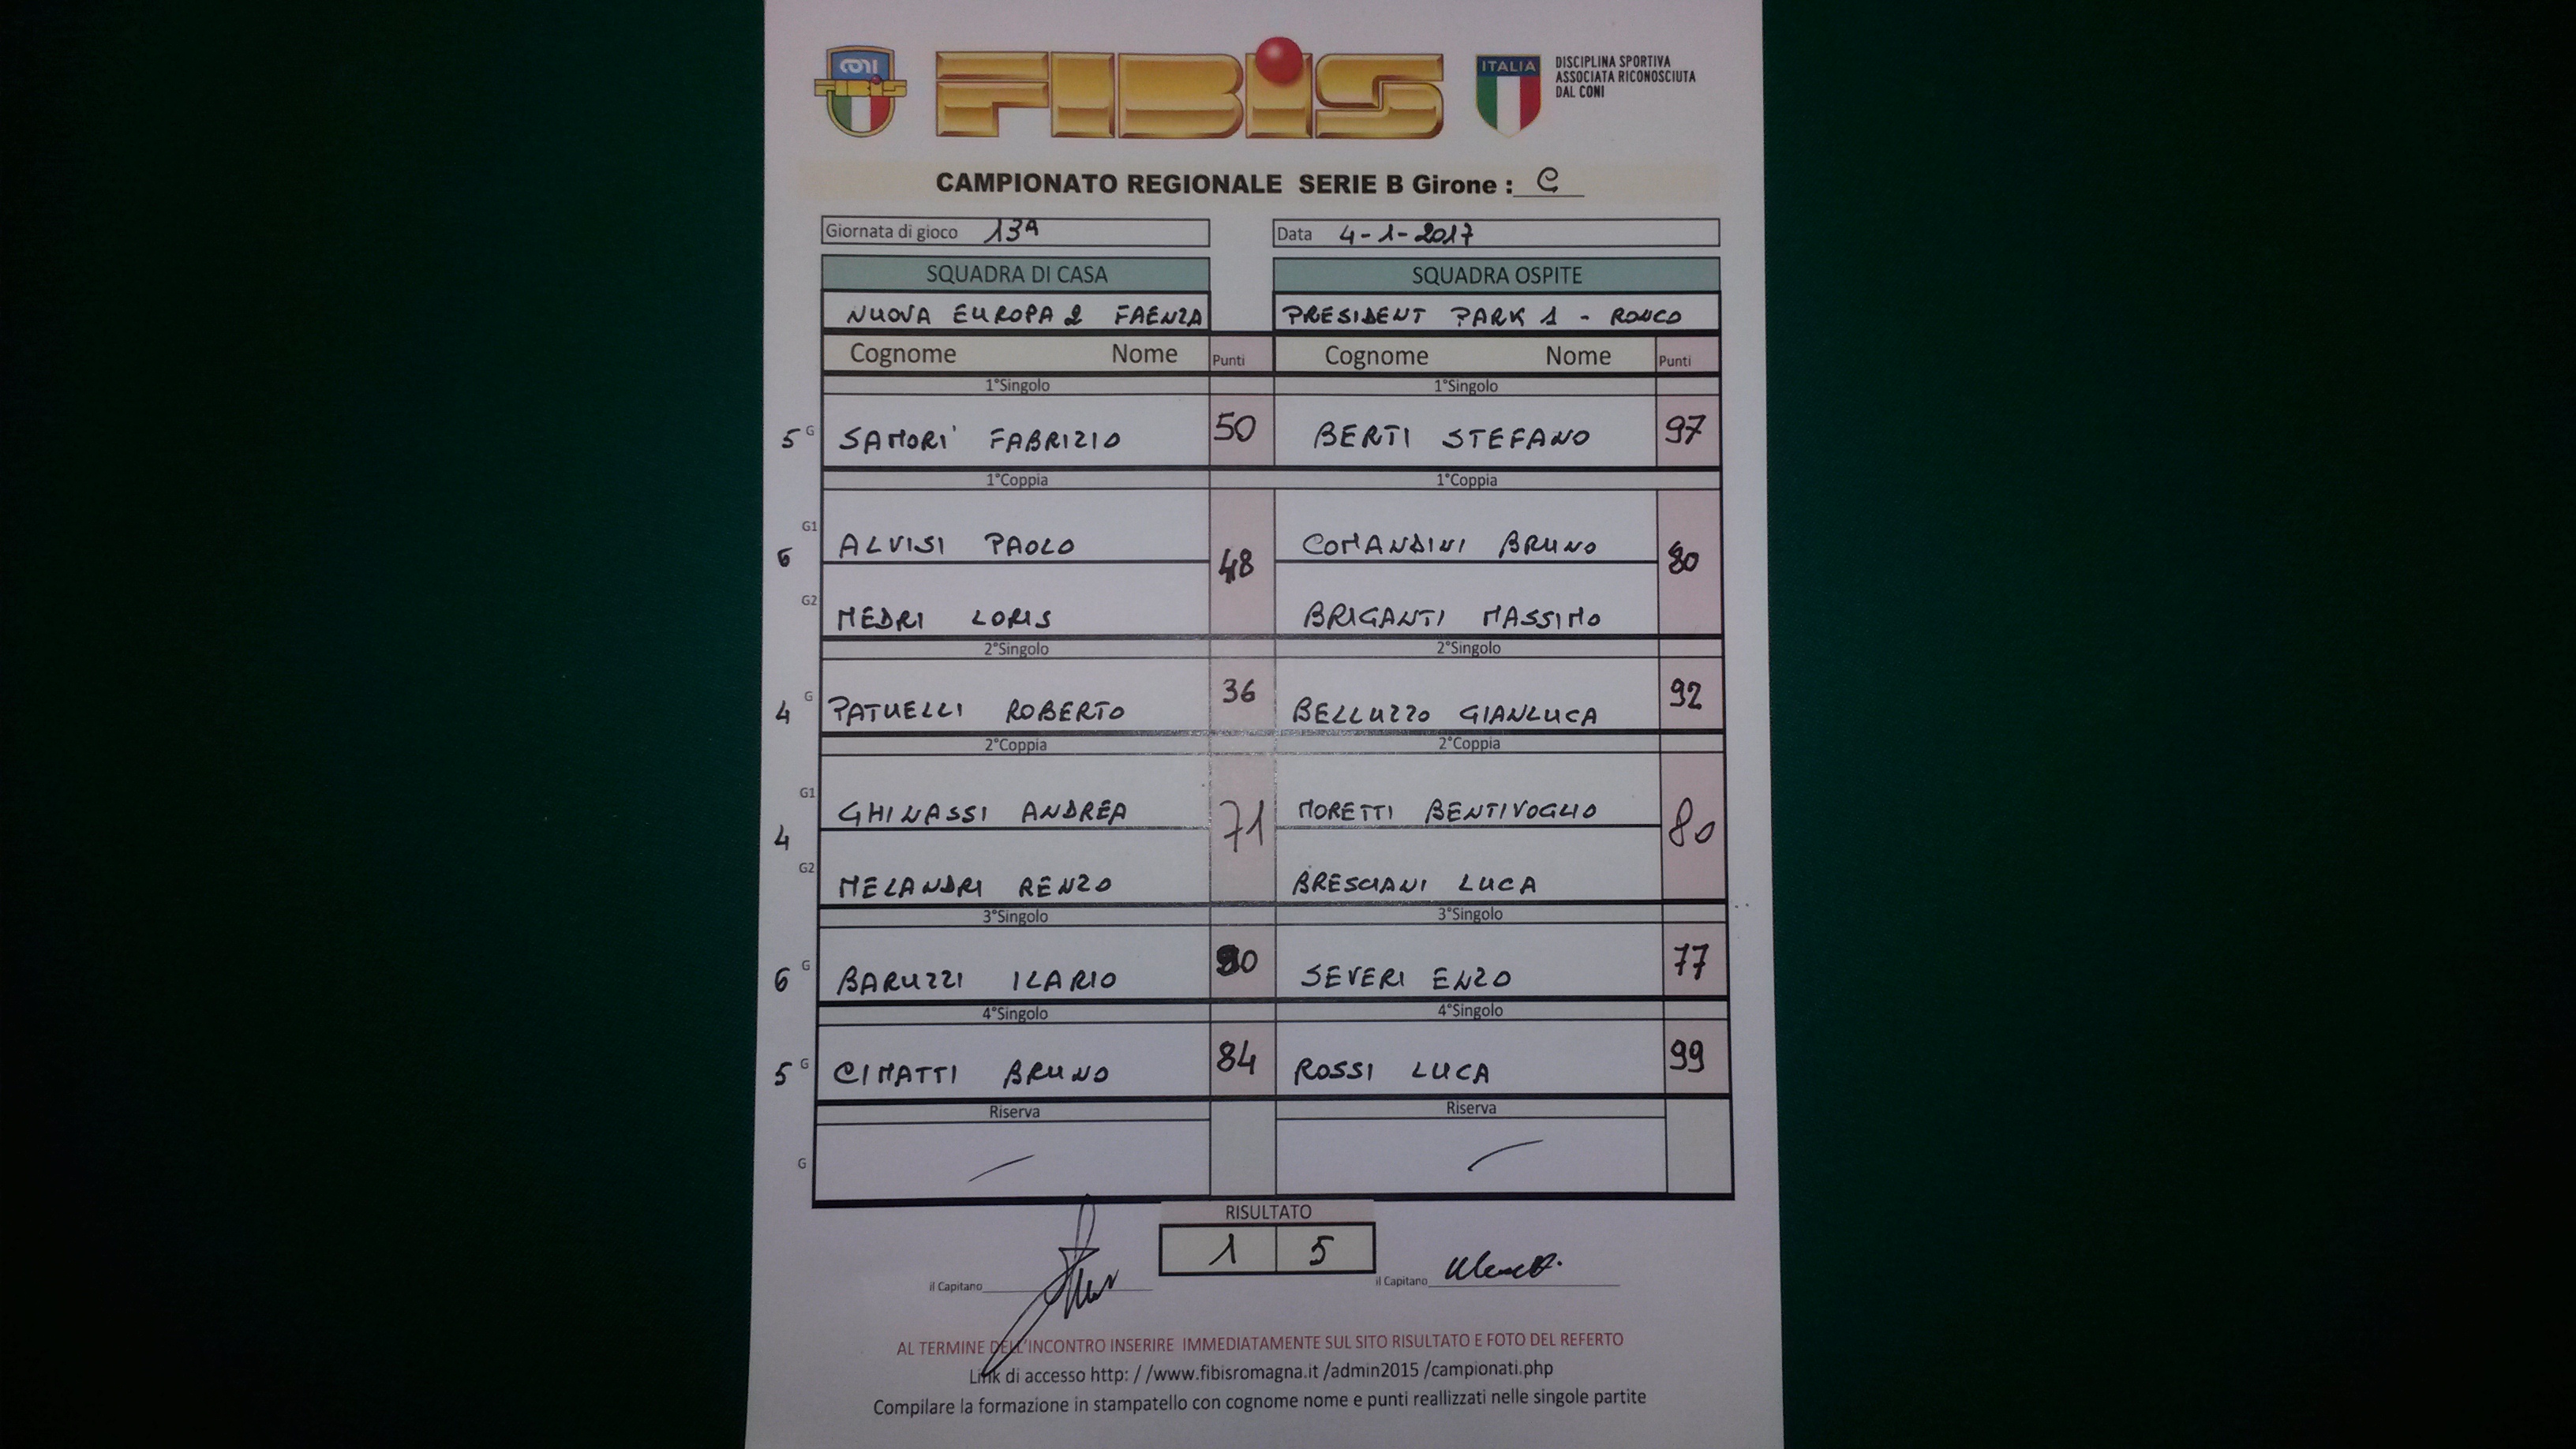 CONI
FIBIS
FIBIS
ITALIA
DISCIPLINA SPORTIVA
ASSOCIATA RICONOSCIUTA
DAL CONI
CAMPIONATO REGIONALE SERIE B Girone : C
Giornata di gioco 13A Data 4-1-2017
SQUADRA DI CASA SQUADRA OSPITE
NUOVA EUROPA 2 FAENZA PRESIDENT PARK 1 - RONCO
Cognome Nome Punti Cognome Nome Punti
1°Singolo 1°Singolo
5 G SAMORI' FABRIZIO 50 BERTI STEFANO 97
1°Coppia 1°Coppia
G1 ALVISI PAOLO COMANDINI BRUNO
6 48 80
G2 MEDRI LORIS BRIGANTI MASSIMO
2°Singolo 2°Singolo
4 G PATUELLI ROBERTO 36 BELLUZZO GIANLUCA 92
2°Coppia 2°Coppia
G1 GHINASSI ANDREA MORETTI BENTIVOGLIO
4 71 80
G2 MELANDRI RENZO BRESCIANI LUCA
3°Singolo 3°Singolo
6 G BARUZZI ILARIO SEVERI ENZO 77
4°Singolo 4°Singolo
5 G CIMATTI BRUNO 84 ROSSI LUCA 99
Riserva Riserva
G
RISULTATO
1 5
il Capitano il Capitano
AL TERMINE DELL'INCONTRO INSERIRE IMMEDIATAMENTE SUL SITO RISULTATO E FOTO DEL REFERTO
Link di accesso http: / /www.fibisromagna.it /admin2015 /campionati.php
Compilare la formazione in stampatello con cognome nome e punti reallizzati nelle singole partite